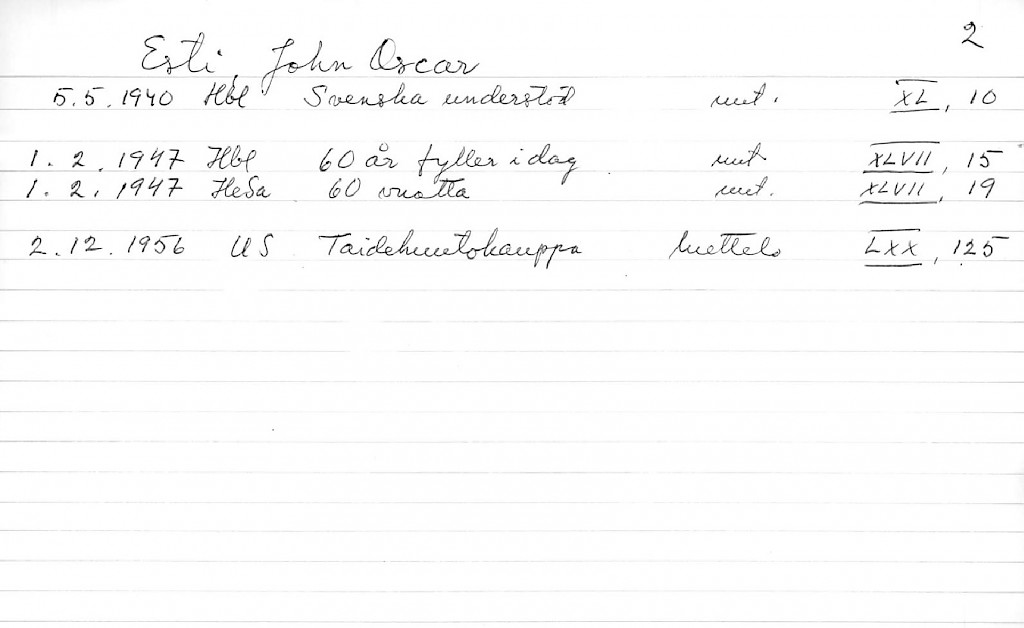 2
Esti, John Oscar
5.5.1940 Hbl Svenska understöd uut. XL, 10
1.2.1947 Hbl 60 år fyller i dag uut XLVII, 15
1.2.1947 HeSa 60 vuotta uut. XLVII, 19
2.12.1956 US Taidehuutokauppa luettelo LXX, 125